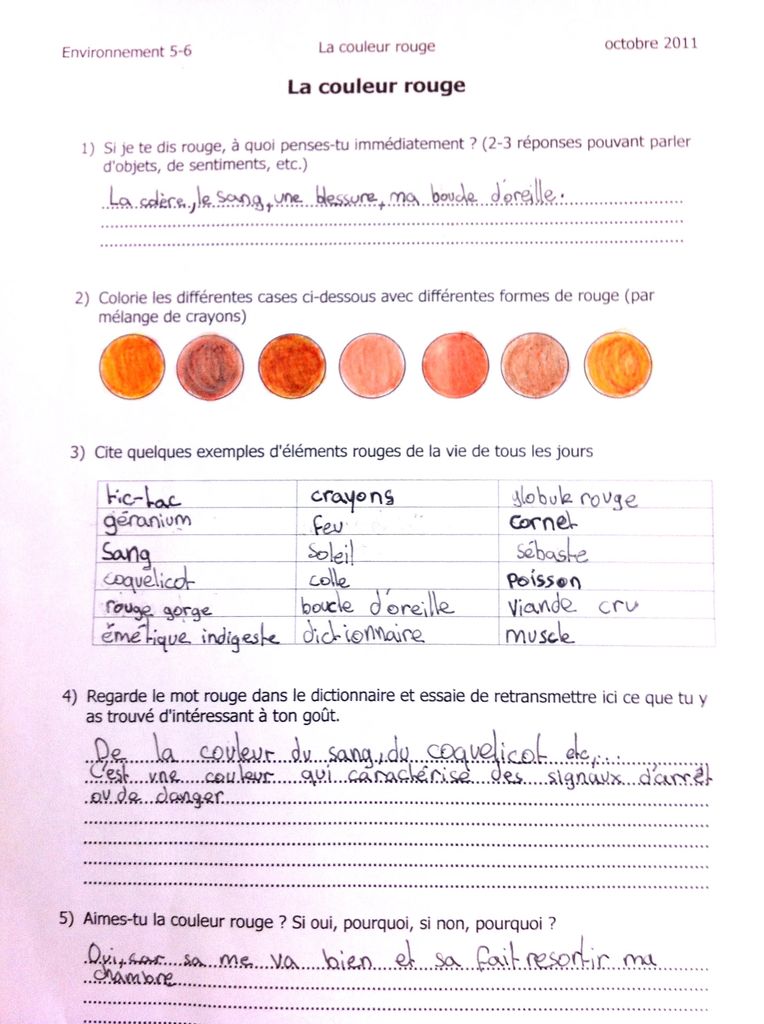 Environnement 5-6 La couleur rouge octobre 2011
La couleur rouge
1) Si je te dis rouge, à quoi penses-tu immédiatement ? (2-3 réponses pouvant parler
d'objets, de sentiments, etc.)
La colère, le sang, une blessure, ma boucle d'oreille.
2) Colorie les différentes cases ci-dessous avec différentes formes de rouge (par
mélange de crayons)
3) Cite quelques exemples d'éléments rouges de la vie de tous les jours
tic-tac crayons globule rouge
géranium feu cornet
sang soleil sébaste
coquelicot colle poisson
rouge gorge boucle d'oreille viande cru
émétique indigeste dictionnaire muscle
4) Regarde le mot rouge dans le dictionnaire et essaie de retransmettre ici ce que tu y
as trouvé d'intéressant à ton goût.
De la couleur du sang, du coquelicot etc,...
C'est une couleur qui caractérise des signaux d'arrêt
ou de danger
5) Aimes-tu la couleur rouge ? Si oui, pourquoi, si non, pourquoi ?
Oui, car sa me va bien et sa fait resortir ma
chambre